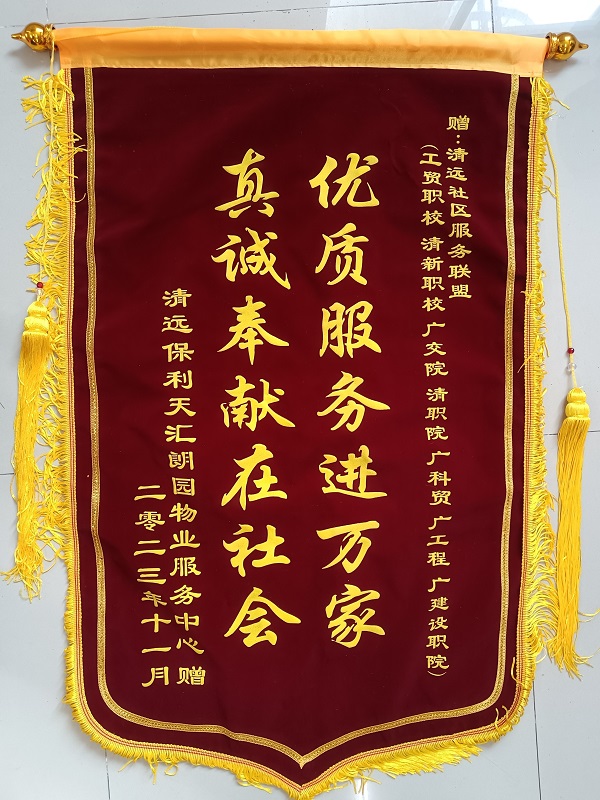 赠：清远社区服务联盟
（工贸职校 清新职校 广交院 清职院 广科贸 广工程 广建设职院）
优质服务进万家
真诚奉献在社会
清远保利天汇朗园物业服务中心 赠
二零二三年十一月